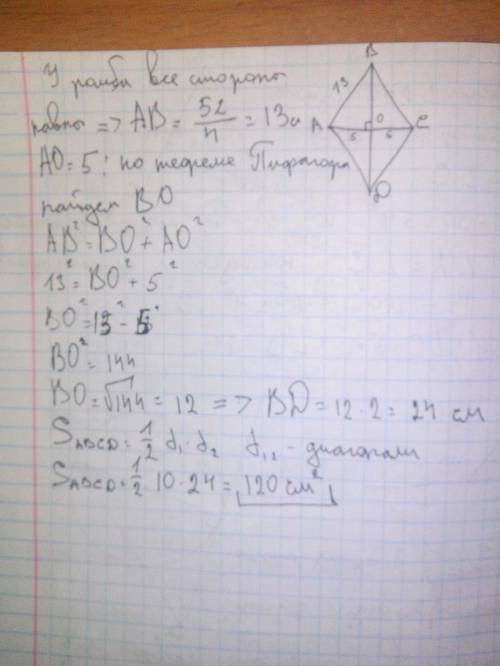 У ромба все стороны
равны => AB = 52/4 = 13 см
AO = 5; по теореме Пифагора
найдем BO
AB² = BO² + AO²
13² = BO² + 5²
BO² = 13² - 5²
BO² = 144
BO = √144 = 12 => BD = 12·2 = 24 см
S_ABCD = 1/2 d₁·d₂ d₁,₂ - диагонали
S_ABCD = 1/2 10·24 = 120 см²
B
13
A
O
C
5
5
D